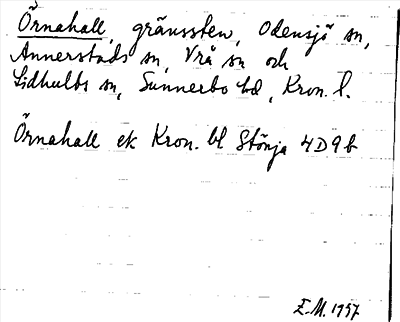 Örnahall, gränssten, Odensjö sn,
Annerstads sn, Vrå sn och
Lidhults sn, Sunnerbo hd, Kron. l.
Örnahall ek Kron. bl Stönja 4D9b
E.M. 1957